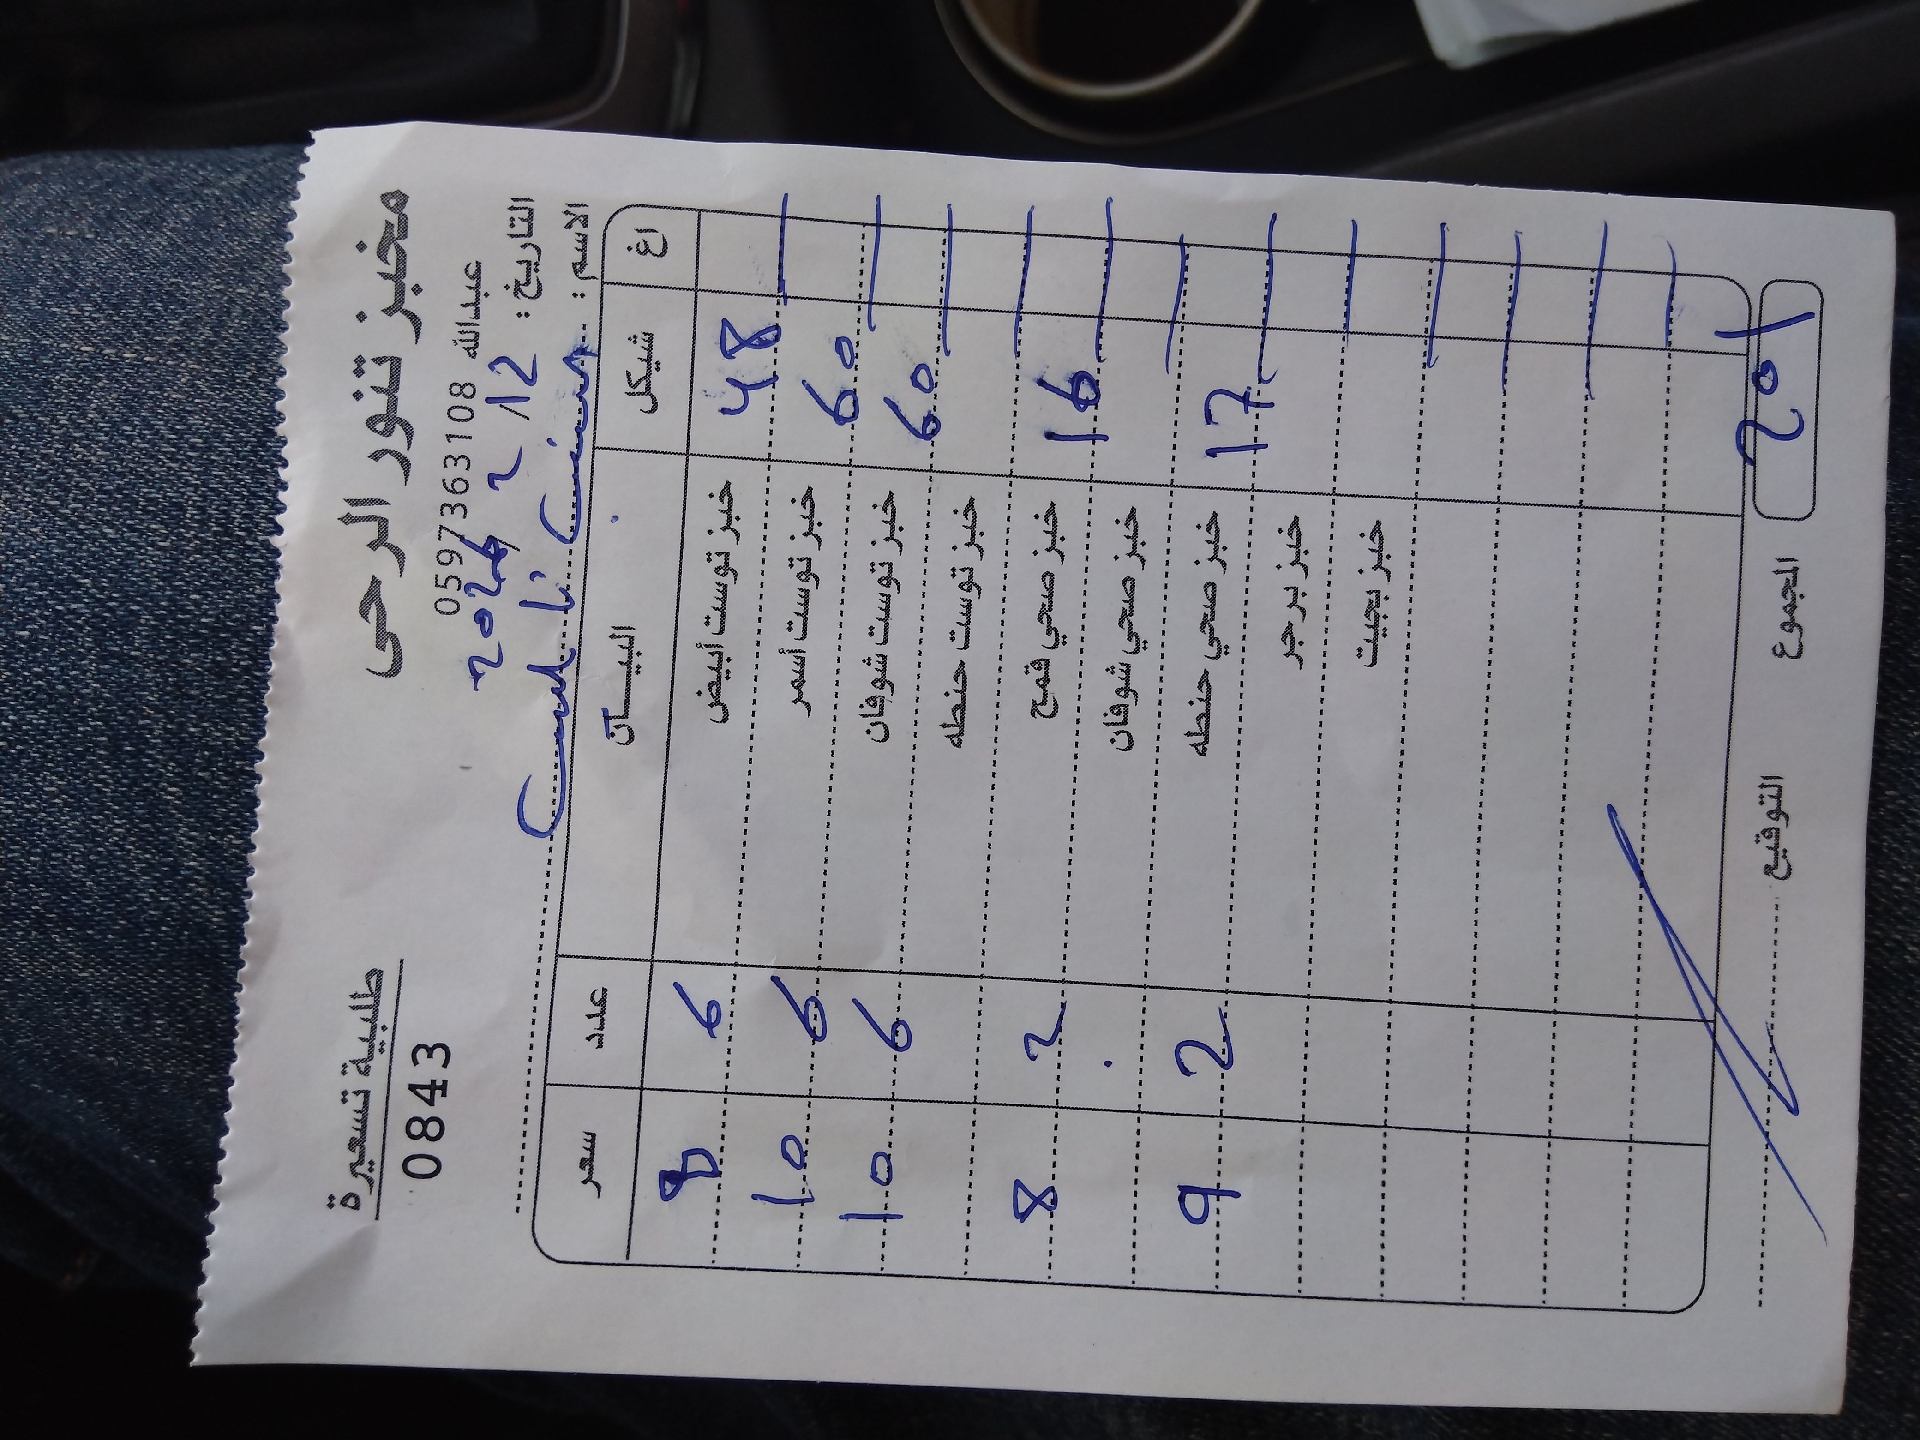 مخبز تنور الرحى
طلبية تسعيرة
0597363108 عبدالله
0843
التاريخ : 2026/2/12
الاسم :
اغ شيكل البيــــان عدد سعر
48 خبز توست أبيض 6 8
60 خبز توست أسمر 6 10
60 خبز توست شوفان 6 10
خبز توست حنطه
16 خبز صحي قمح 2 8
خبز صحي شوفان
17 خبز صحي حنطه 2 9
خبز برجر
خبز بجيت
201 المجموع
التوقيع